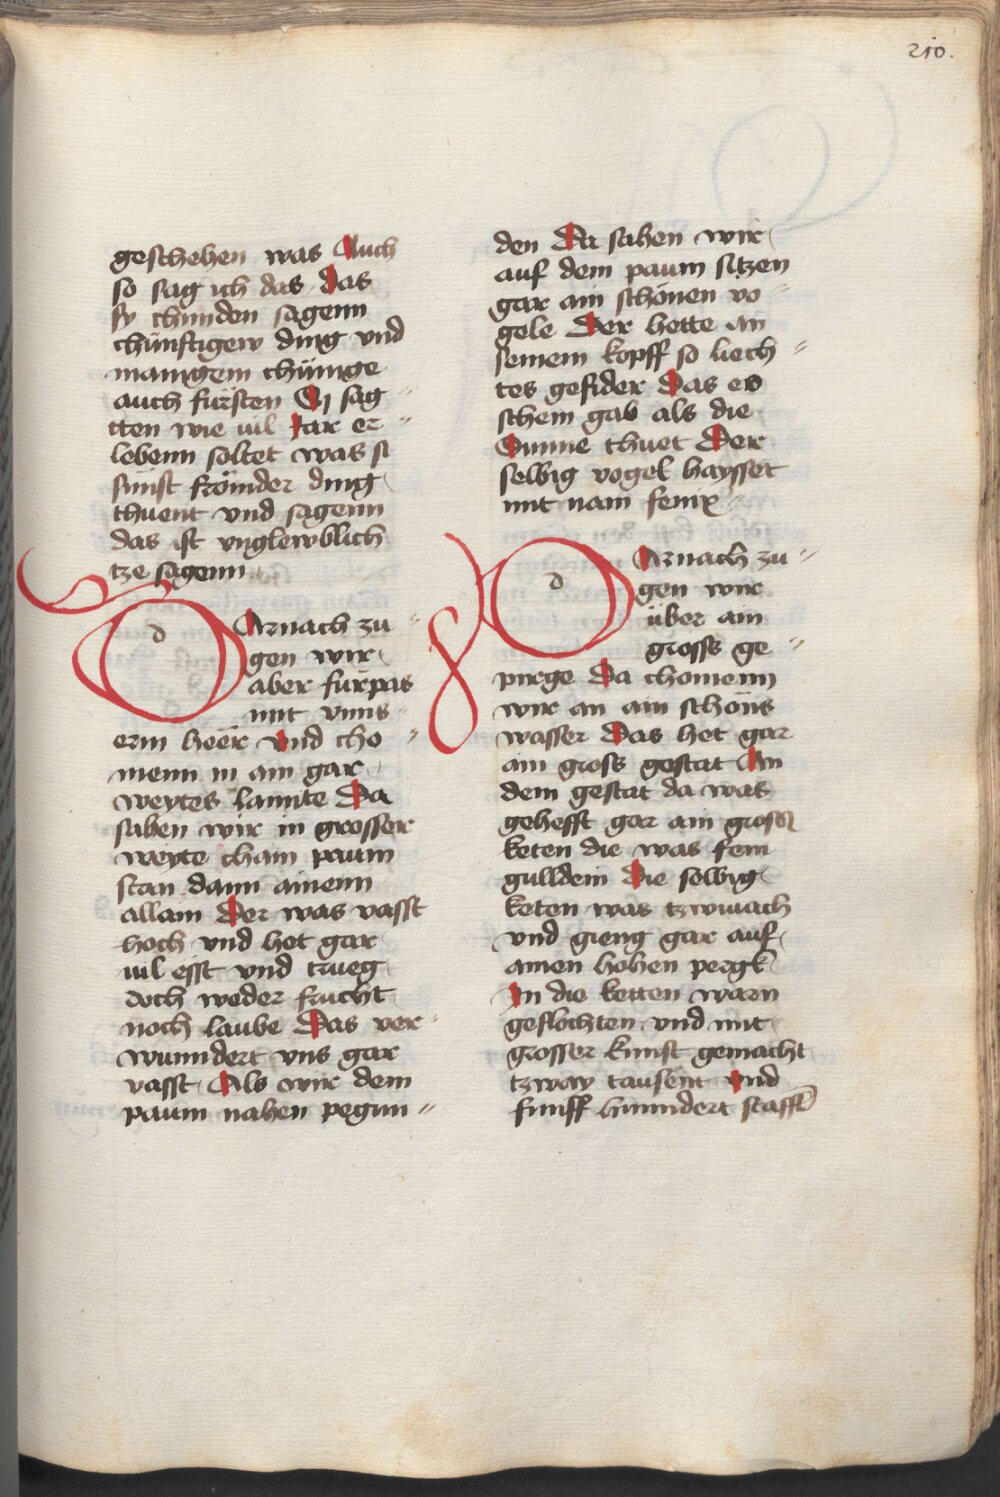 210.
geschehen was Auch
so sag ich das das
sy chunden sagenn
chünfftigew ding vnd
manigem chünige
auch fürsten Sy sag
tten wie uil Jar er
lebenn soltet was si
sünst frömder ding
thuent vnd sagenn
das ist vnglewblich
tze sagenn
DArnach zu
gen wir
aber fürpas
mit vnns
erm heer vnd cho
menn in ain gar
weytes lannte Da
sahen wir in grosser
weyte chain paum
stan dann ainenn
allain Der was vasst
hoch vnd het gar
uil esst vnd trueg
doch weder frucht
noch laube Das ver
wunndert vns gar
vasst Als wir dem
paum nahen pegun
den Da sahen wir
auf dem paum sitzen
gar ain schönen vo
gele Der hette an
seinem kopff so liech
tes gefider Das es
schein gab als die
Sunne thuet Der
selbig vogel haysset
mit nam fenix
DArnach zu
gen wir
über ain
gross ge
pirge Da chomenn
wir an ain schöns
wasser Das het gar
ain gross gestat An
dem gestat da was
gehefft gar ain gross
keten die was fein
gulldein Die selbig
keten was tzwiuach
vnd gieng gar auf
ainen hohen pergk
In die ketten warn
geflochten vnd mit
grosser kunst gemacht
tzway tausent vnd
funff hunndert staffl